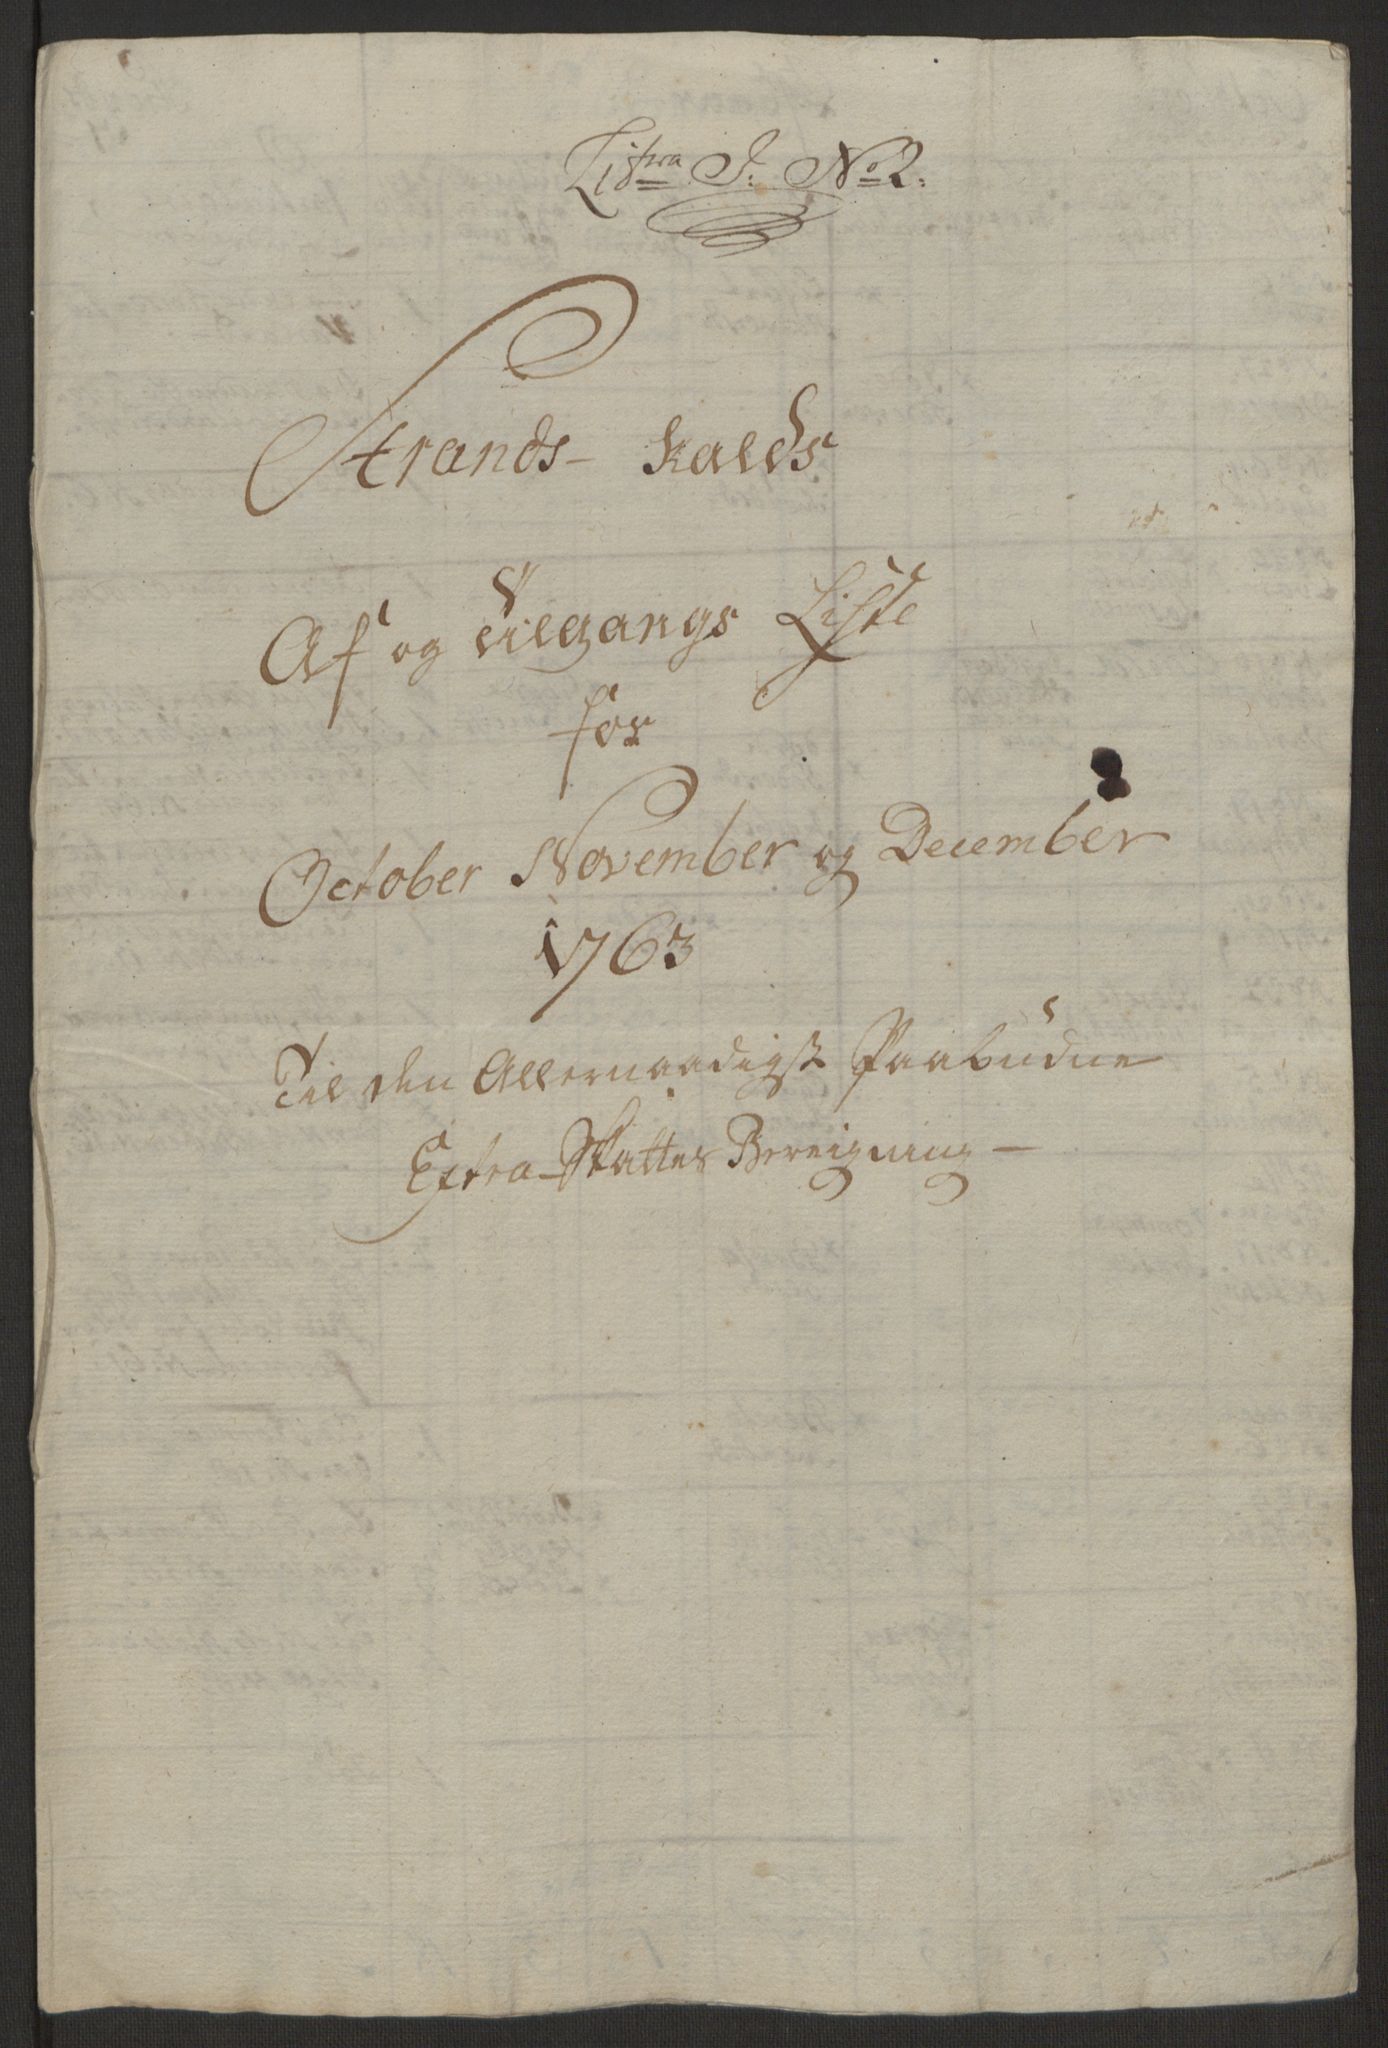 Litra J: No 2:
Strands- Kalds
Af og Tilgangs Liste
for
October November og December
1763
Til den Allernaadigst Paabudne
Extra-Skattes Bereigning-